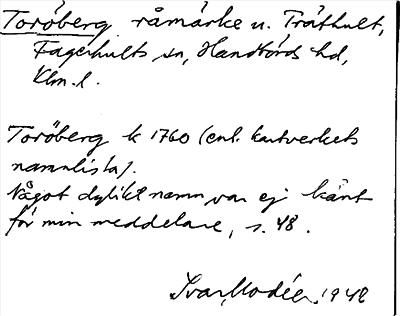 Toröberg råmärke u. Träthult,
Fagerhults sn, Handbörds hd,
Klm. l.
Toröberg k 1760 (enl. kartverkets
namnlista).
Något dylikt namn var ej känt
för min meddelare, s. 48.
Ivar Modéer. 1948